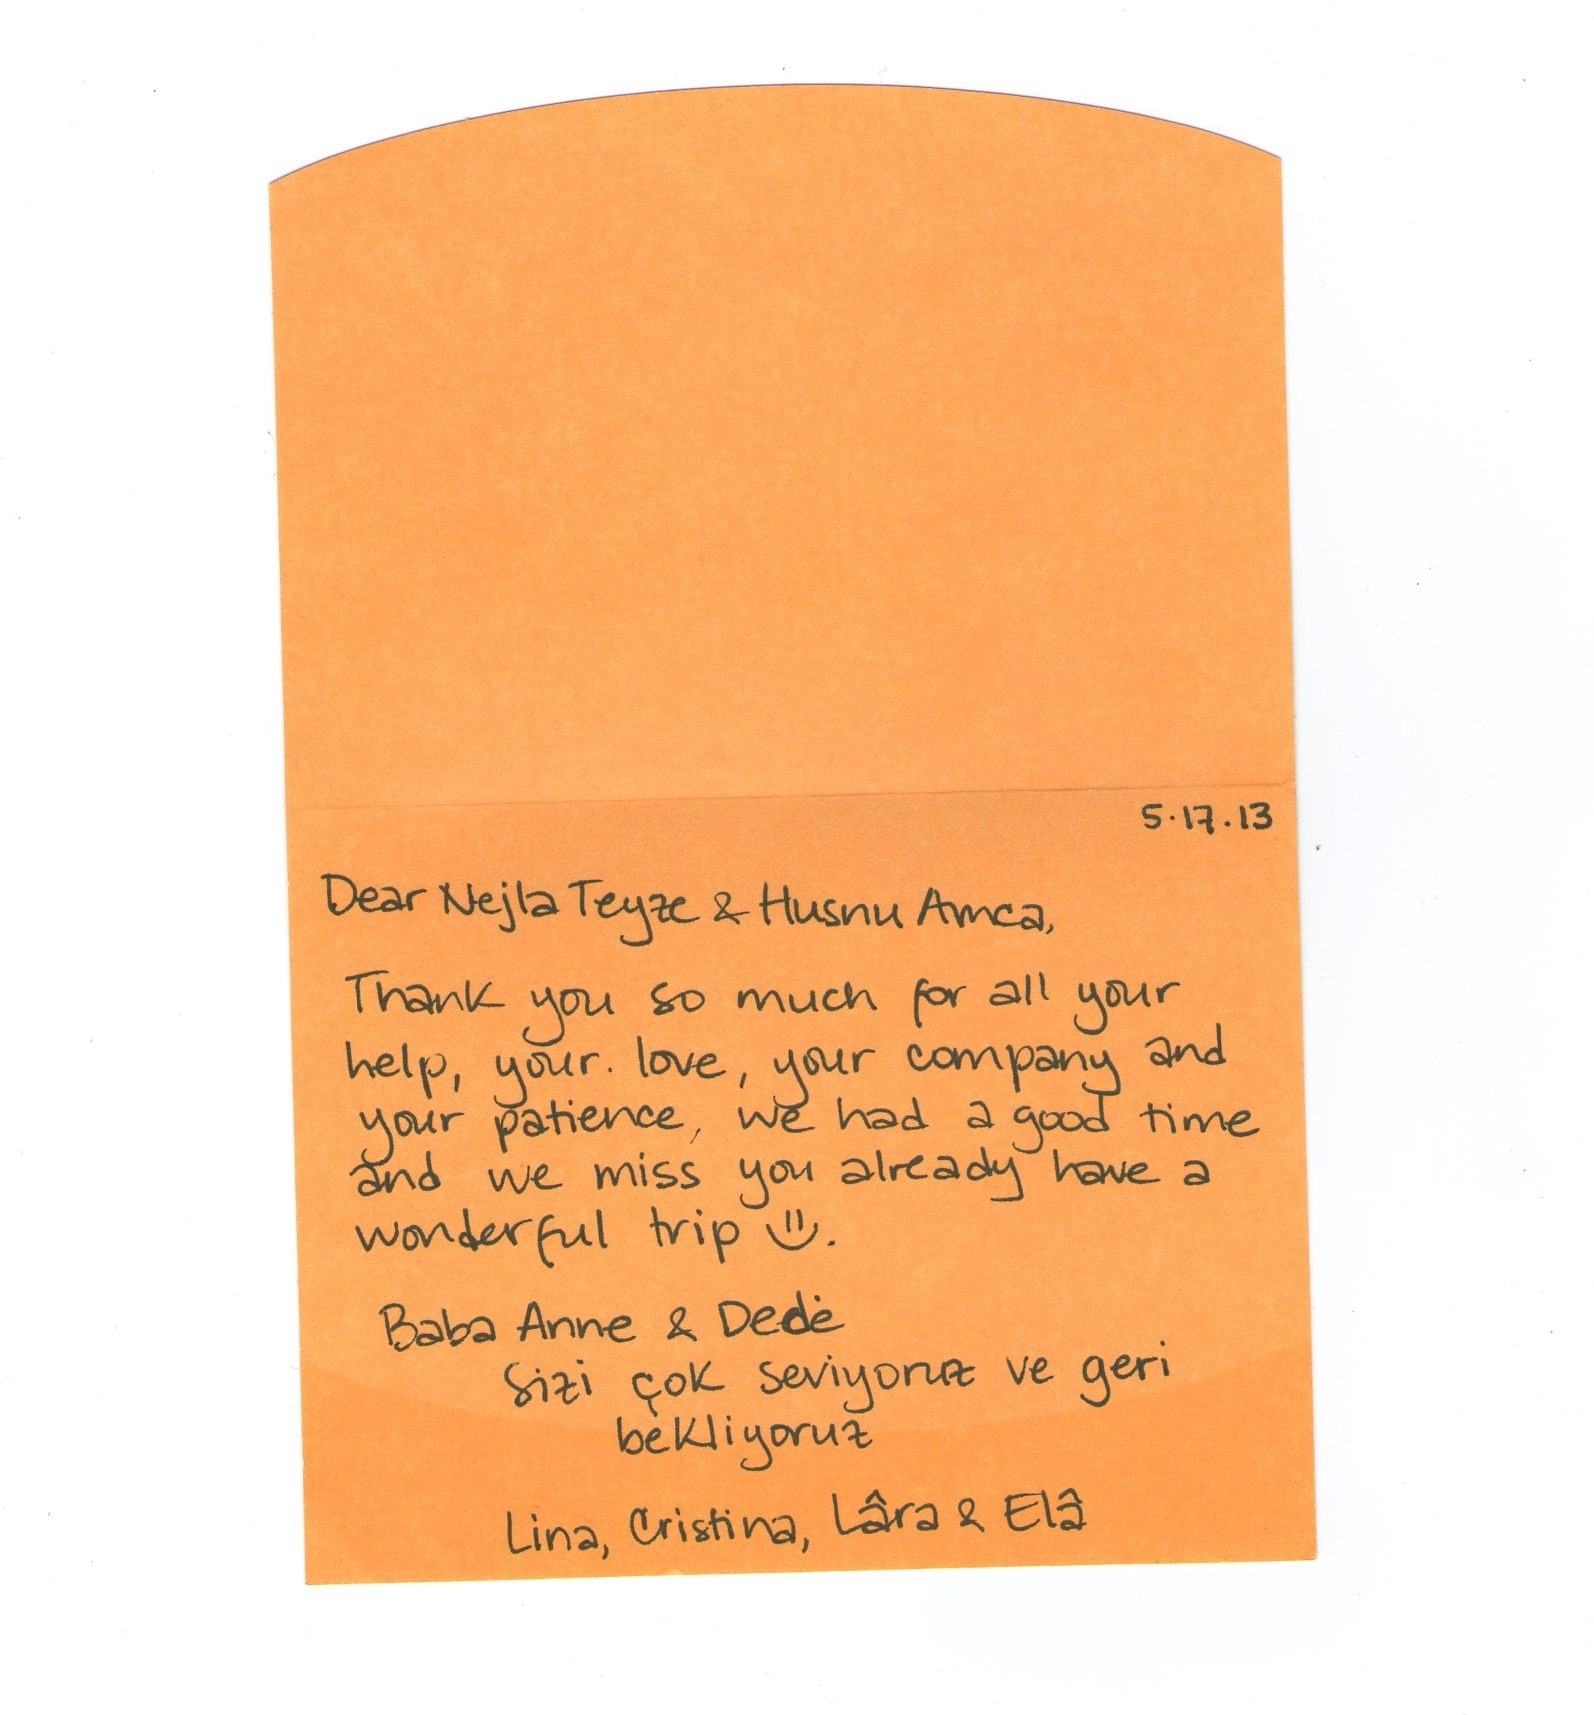 5.17.13
Dear Nejla Teyze & Husnu Amca,
Thank you so much for all your
help, your. love, your company and
your patience, we had a good time
and we miss you already have a
wonderful trip ∪̈.
Baba Anne & Dedė
Sizi çok seviyoruz ve geri
bekliyoruz
Lina, Cristina, Lâra & Elâ